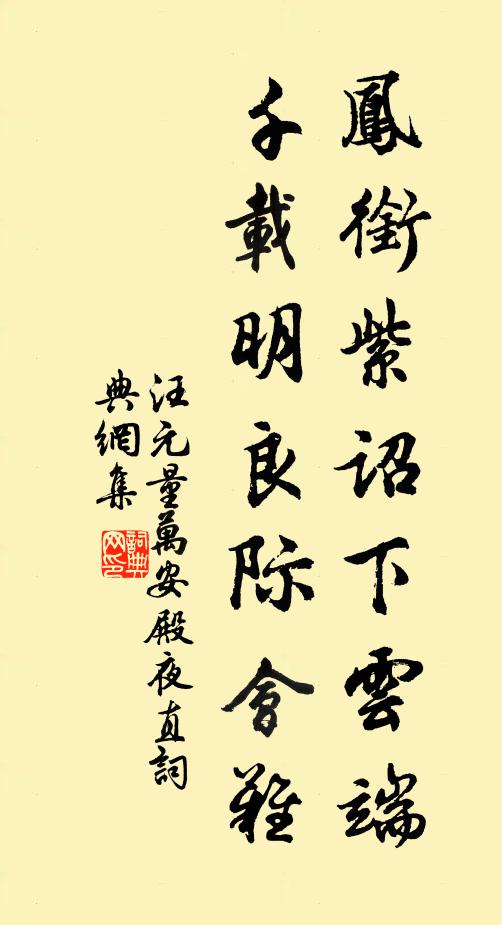 鳳銜紫詔下雲端
千載明良际會難
汪元量萬安殿夜直詞
典網集
詞典网印